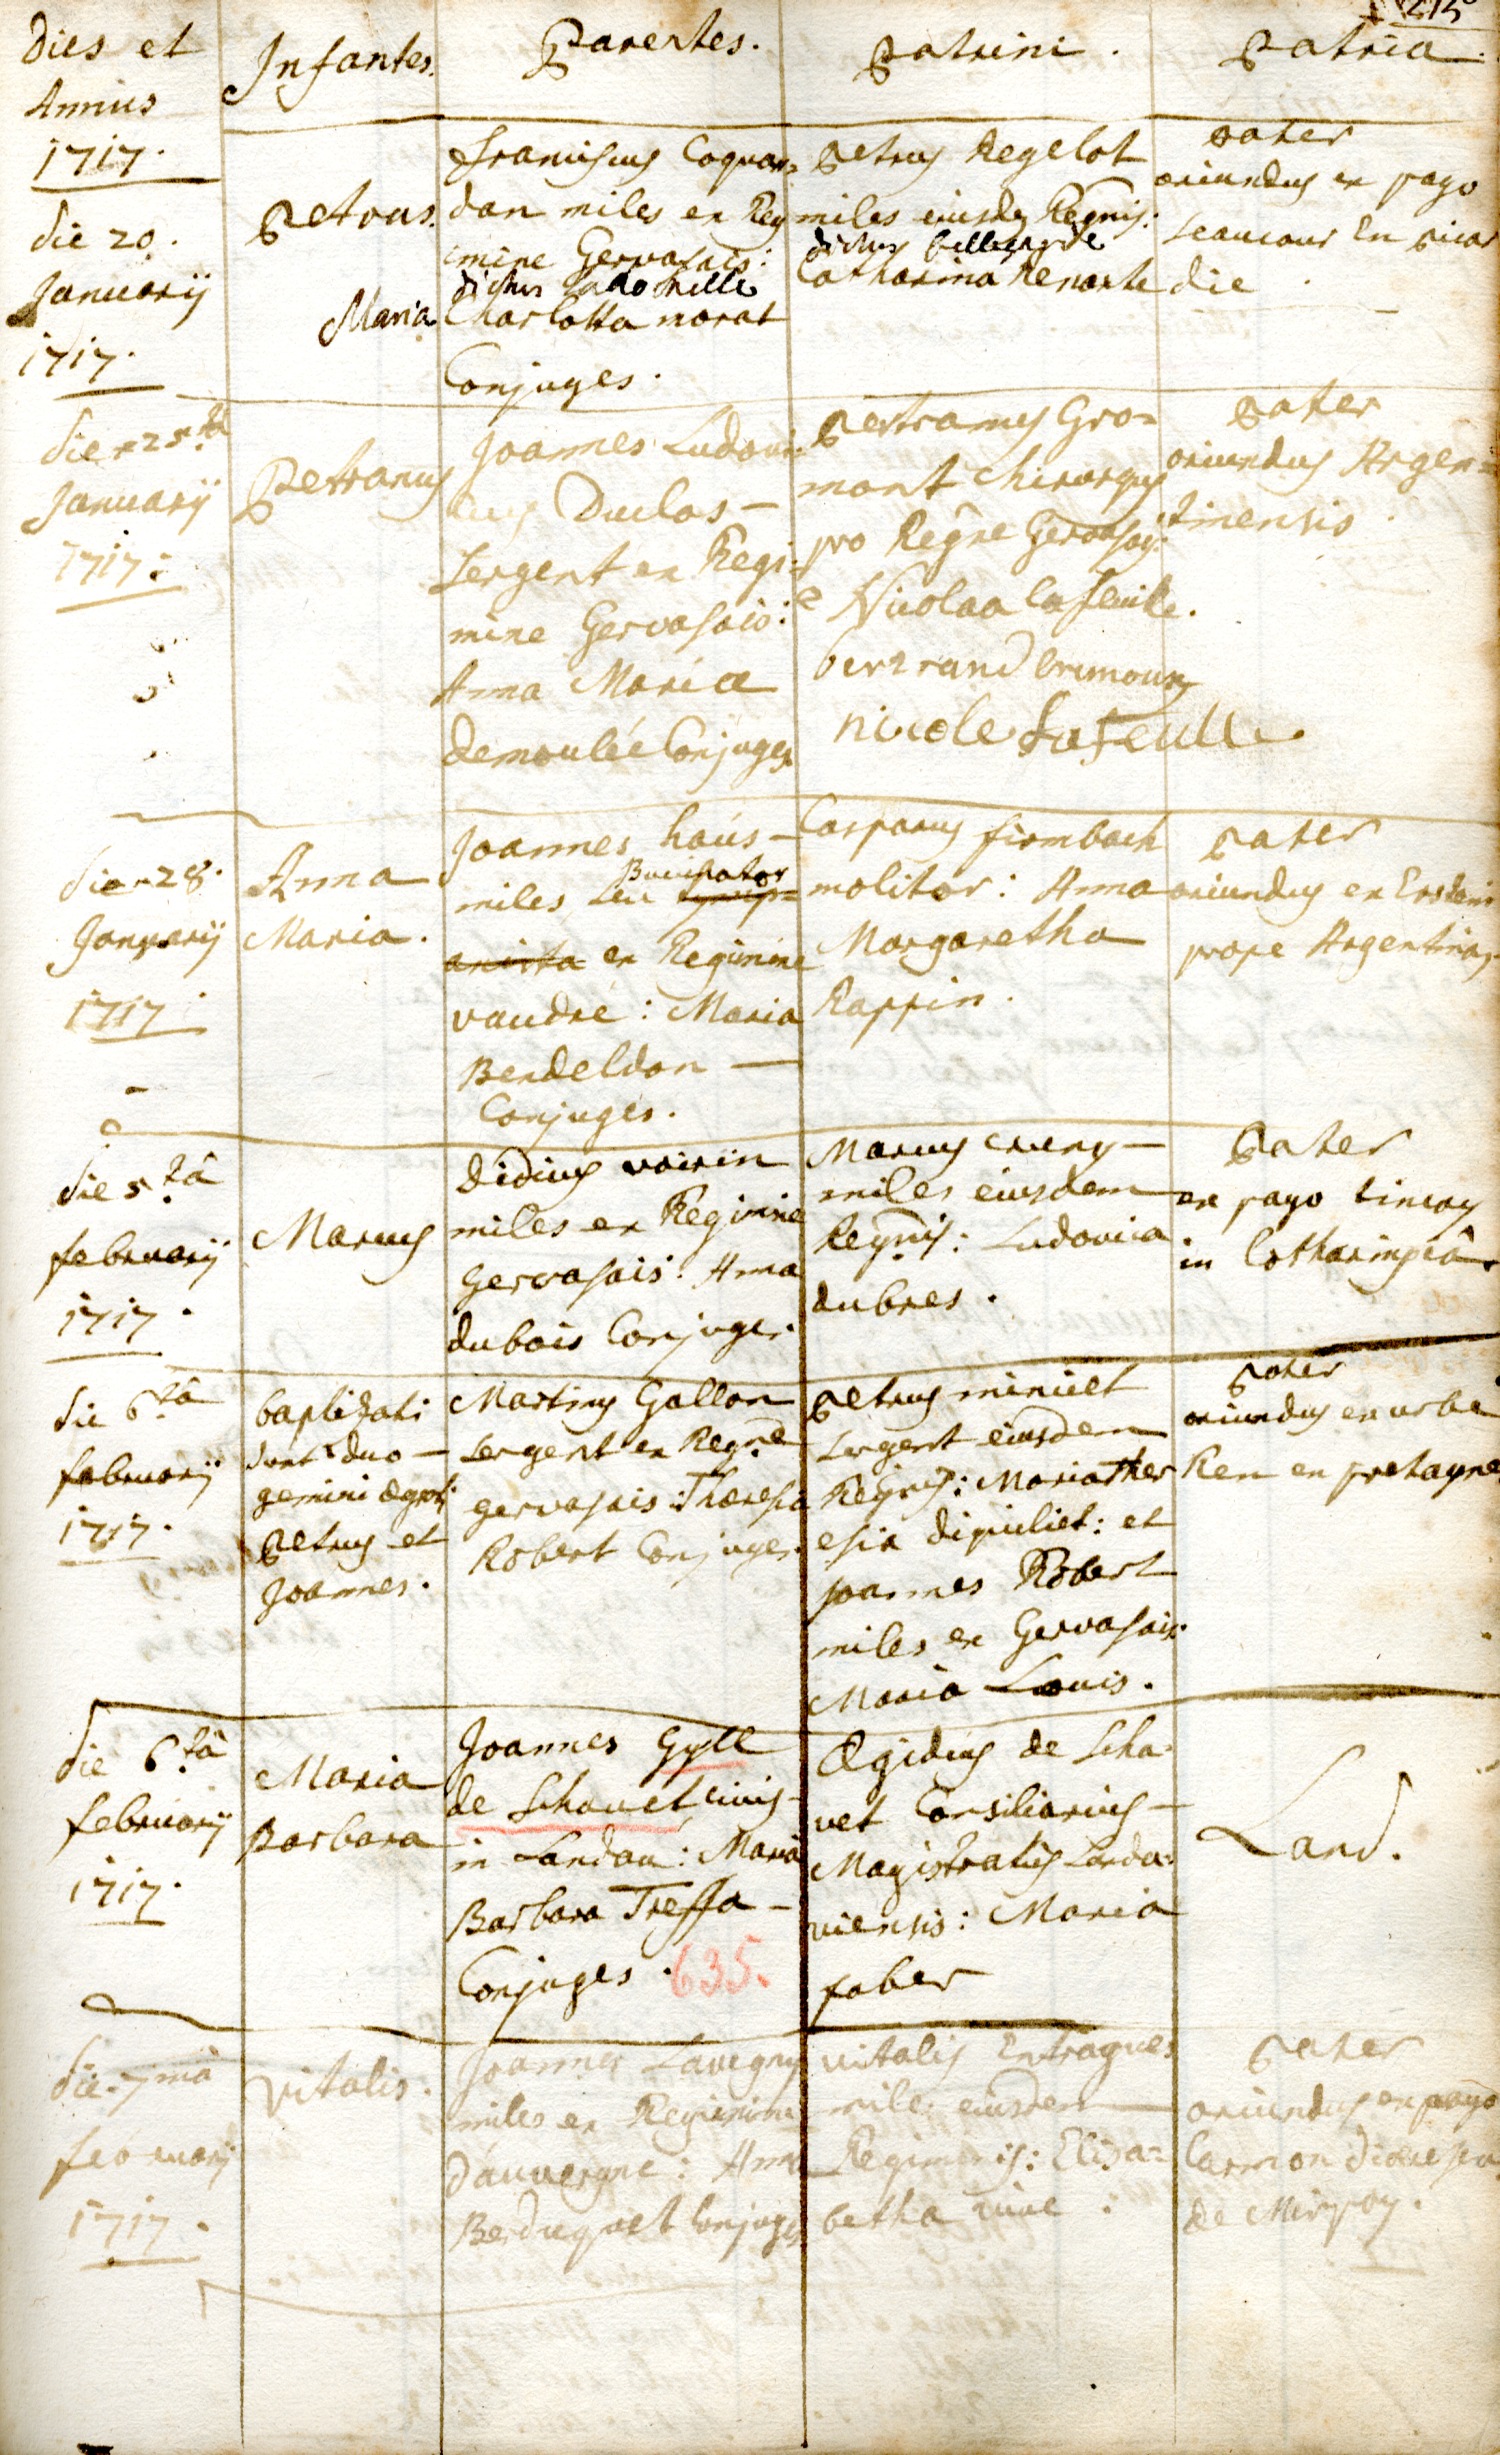 215
Dies et
Annus
1717.
Infantes.
Parentes.
Patrini.
Patria.
die 20.
Januarij
1717.
Petrus.
Maria
franciscus Coquar=
dan miles ex Reg
imine Gervasais:
dictus
Charlotta morat
Conjuges.
Petrus Regelot
miles eiusdem Regnis:
dictus
Catharina Renarte
Pater
oriundus ex pago
Leaucour En picar
die
die 25tâ
Januarij
1717:
Petranus
Joannes Ludovi=
cus Duclos –
sergent ex Regi=
mine Gervasais:
Anna Maria
demoulée Conjuges.
Pertramus Gro=
mont chirurgus
pro Regne Gervasay:
e Nicolaa lafeuile.
bertrand Grumoun
nicole Lafeulle.
Pater
oriundus Argen=
tinensis.
die 28.
Januarij
1717.
Anna
Maria.
Joannes haus –
Buccinator
miles seu tymp=
anista ex Regimine
vaudré: Maria
Bendeldon –
Conjuges.
Casparus firmbach
molitor: Anna
Margaretha
Rappin.
Pater
oriundus ex Erstein
prope Argentinas.
die 5tâ
februarij
1717.
Marcus
didius voirin
miles ex Regimine
Gervasais: Anna
dubois Conjuges.
Marcus cruny –
miles eiusdem
Regnis: Ludovica
dubres.
Pater
ex pago Lincay
in Lotharingiâ.
die 6tâ
februarij
1717.
baptizati
sunt duo –
gemini
Petrus et
Joannes.
Martinus Gallon
sergent ex Regne
gervasais: Theresia
Robert Conjuges.
Petrus miniclt
sergent eiusdem
Regnis: Maria Ther
esia dipuliet: et
joannes Robert
miles ex Gervasais.
Maria Louis.
Pater
oriundus ex urbe
Ren en pretagne
die 6tâ
februarij
1717.
Maria
Barbara
Joannes Gyll
de Schauet civis
in Landau: Maria
Barbara Treffa –
Conjuges. 635.
Ægidius de Scha=
uet Consiliarius –
Magistratus Landa=
viensis: Maria
faber
Land.
die 7mâ
februarij
1717.
Vitalis.
Joannes Lavegny
miles ex Regimine
d'auvergne: Anna
Berduquet Conjuges
vitalis Entragues
miles eiusdem –
Regiminis: Elisa=
betha vive:
Pater
oriundus ex pago
Carmon diœcesea
de Mirpoy.